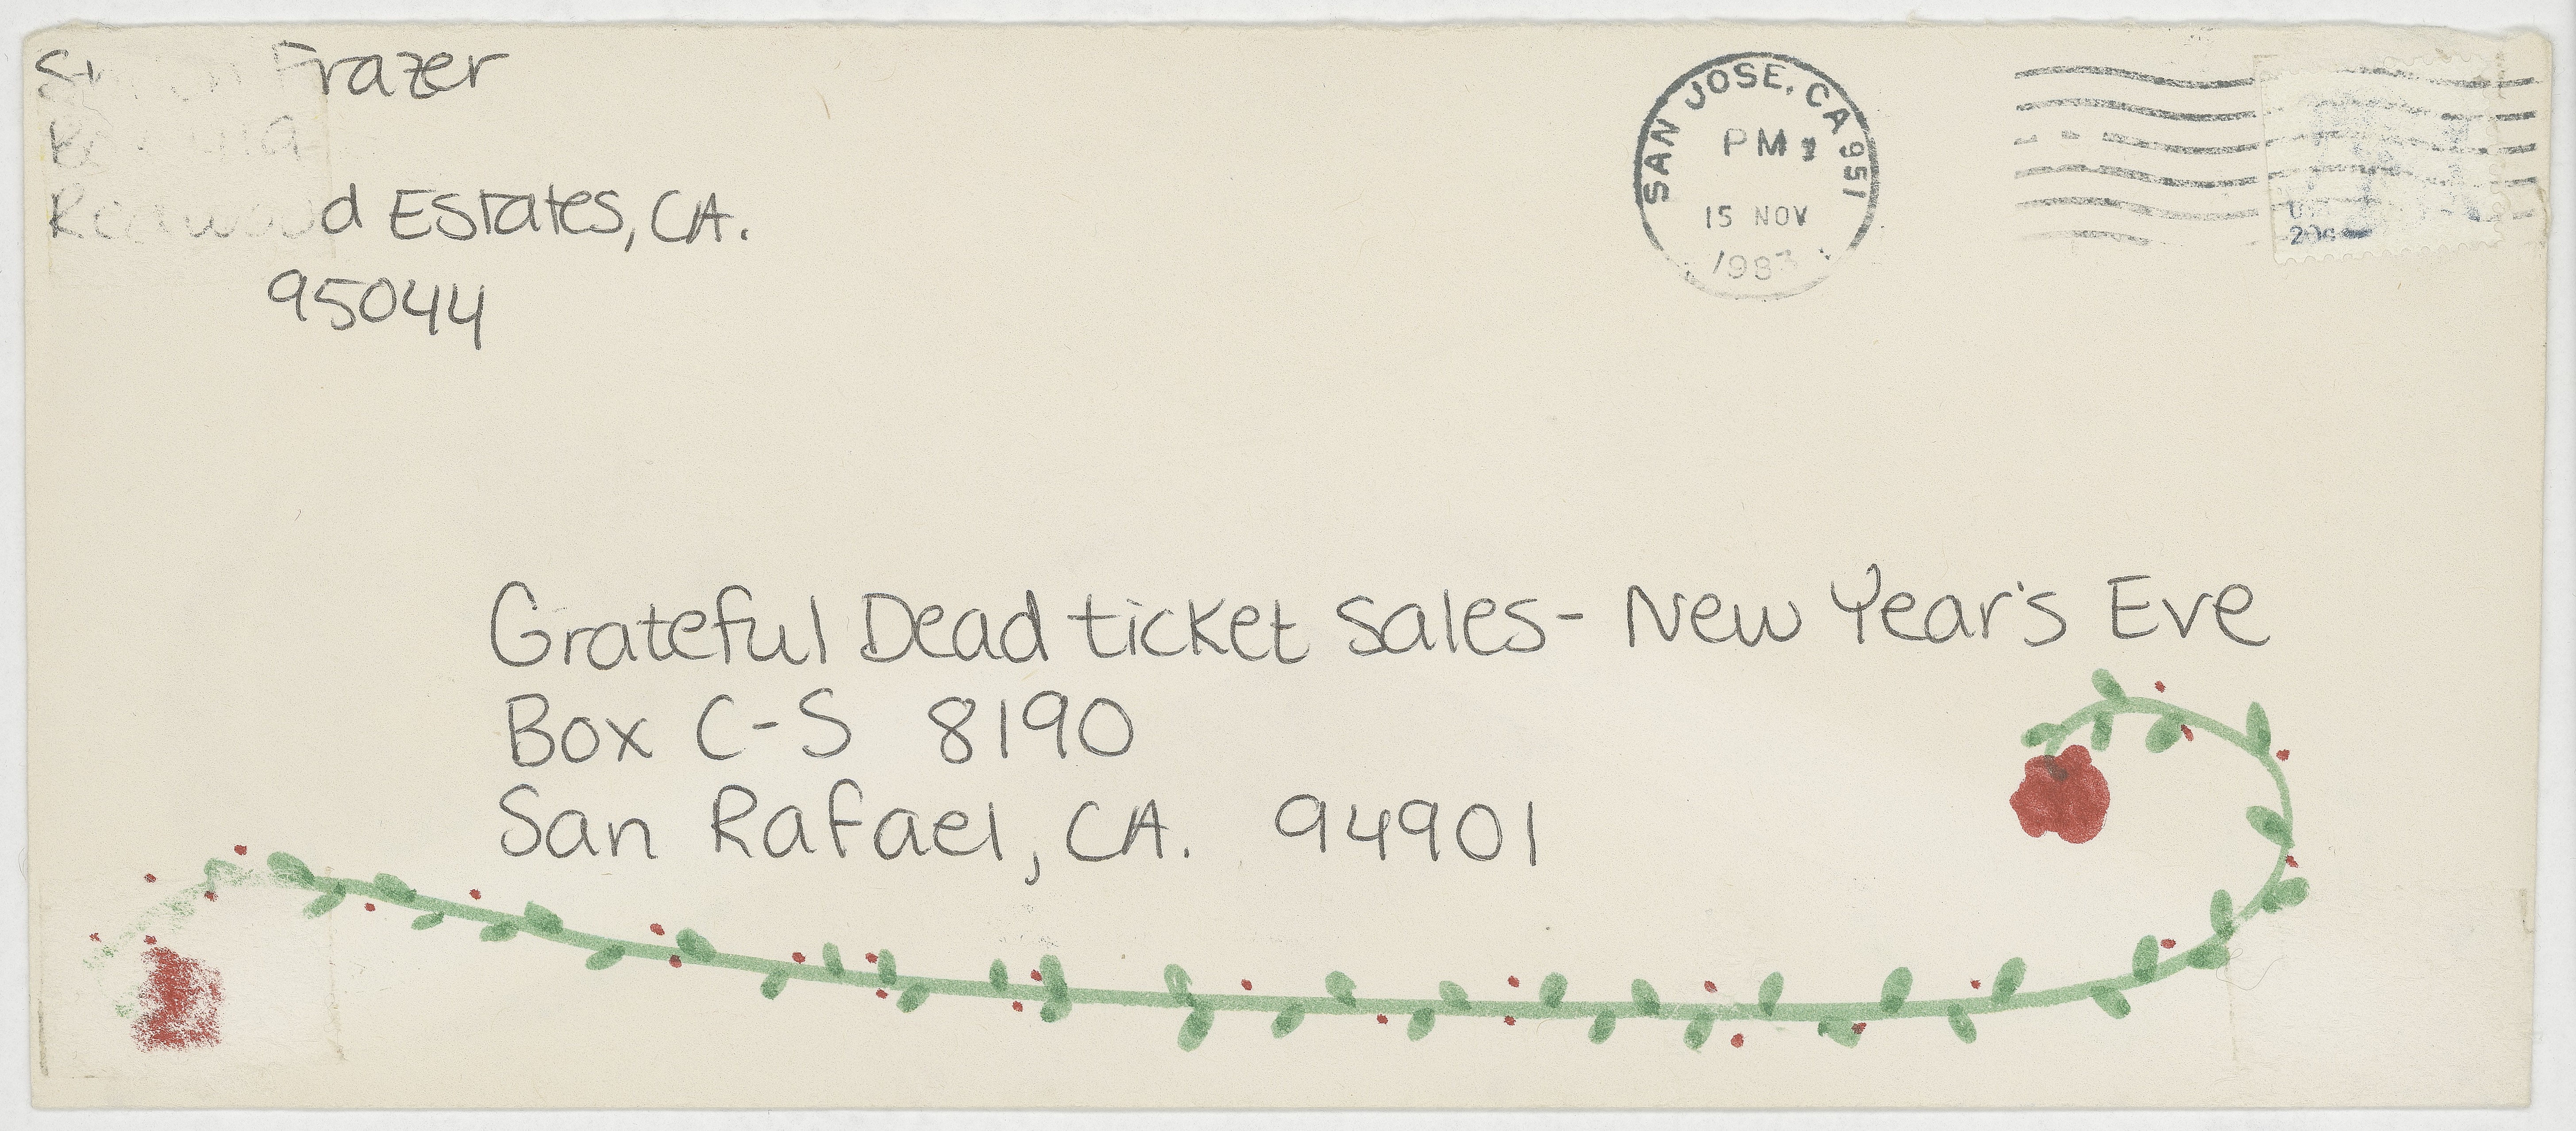 Frazer
Redwood Estates, CA.
95044
SAN JOSE, CA 951
PM
15 NOV
1983
Grateful Dead ticket sales- New Year's Eve
Box C-S 8190
San Rafael, CA. 94901